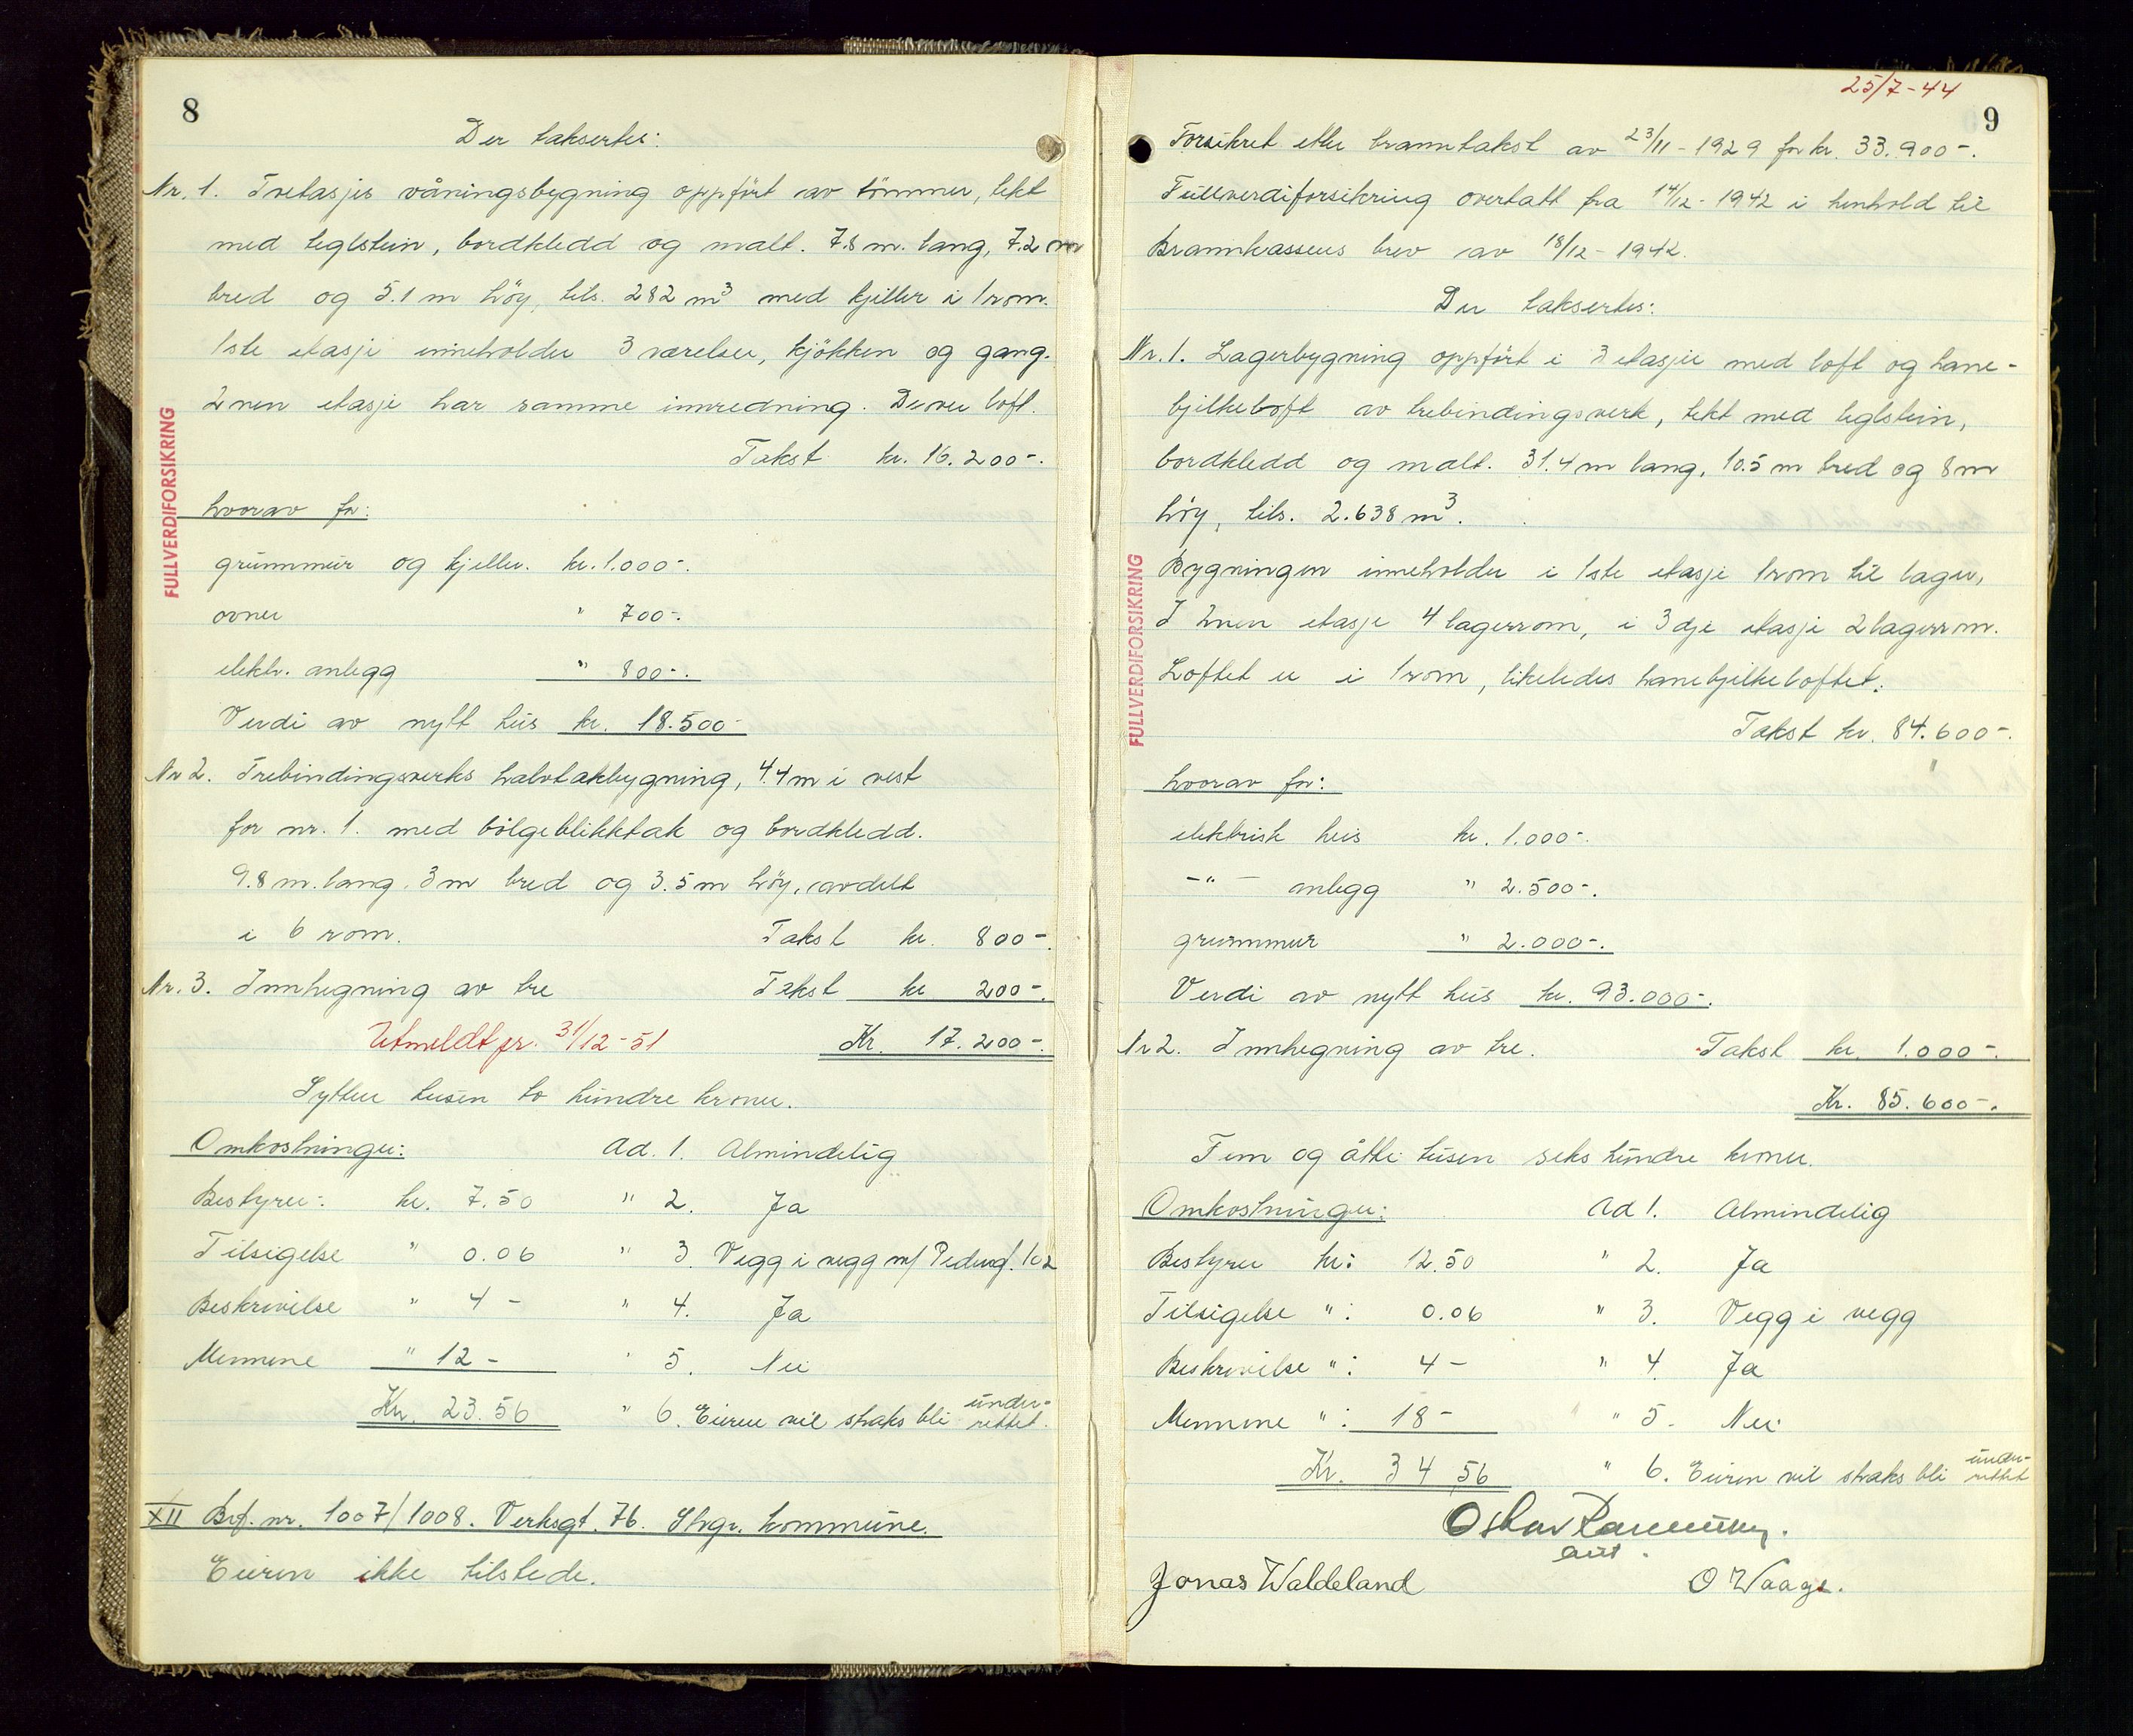 8
Der takserter:
Nr. 1. Toetasjes våningsbygning oppført av tømmer, tekt
med teglstein, bordkledd og malt. 7.8 m. lang, 7.2 m
bred og 5.1 m høy, tils. 282 m³ med kjeller i 1 rom.
1ste etasje inneholder 3 værelser, kjøkken og gang.
2nen etasje har samme innredning. Derover loft.
Takst kr. 16.200-.
FULLVERDIFORSIKRING
hvorav for:
grunnmur og kjeller. kr. 1.000-.
ovner " 700-.
elektr. anlegg " 800-.
Verdi av nytt hus kr. 18.500-
Nr 2. Trebindingsverks halvtakbygning, 4.4 m i vest
for nr. 1. med bølgeblikktak og bordkledd.
9.8 m. lang, 3 m bred og 3.5 m høy, avdelt
i 6 rom. Takst kr. 800-.
Nr. 3. Innhegning av tre Takst kr 200-.
Utmeldt pr. 31/12-51 Kr. 17.200-.
Sytten tusen to hundre kroner.
Omkostninger: Ad. 1. Almindelig
Bestyrer: kr. 7.50 " 2. Ja
Tilsigelse " 0.06 " 3. Vegg i vegg m/ Pedersg. 102
Beskrivelse " 4- " 4. Ja
Mennene " 12- " 5. Nei
Kr. 23.56 " 6. Eieren vil straks bli under-
rettet.
XII Brf. nr. 1007/1008. Verksgt. 76. Stvgr. kommune.
Eieren ikke tilstede.
25/7-44
9
Forsikret etter branntakst av 23/11-1929 for kr. 33.900-.
Fullverdiforsikring overtatt fra 14/12-1942 i henhold til
Brannkassens brev av 18/12-1942.
Der taksertes:
Nr. 1. Lagerbygning oppført i 3 etasjer med loft og hane-
bjelkeloft av trebindingsverk, tekt med teglstein,
bordkledd og malt. 31.4 m lang, 10.5 m bred og 8 m
høy, tils. 2.638 m³.
Bygningen inneholder i 1ste etasje 1 rom til lager,
I 2nen etasje 4 lagerrom, i 3dje etasje 2 lagerrom.
Loftet er i 1 rom, likeledes hanebjelkeloftet.
FULLVERDIFORSIKRING
Takst kr. 84.600-.
hvorav for:
elektrisk heis kr. 1.000-.
-"- anlegg " 2.500-.
grunnmur " 2.000-.
Verdi av nytt hus kr. 93.000-.
Nr 2. Innhegning av tre. Takst kr. 1.000-.
Kr. 85.600-.
Fem og åtti tusen seks hundre kroner.
Omkostninger: Ad 1. Almindelig
Bestyrer kr: 12.50 " 2. Ja
Tilsigelse ": 0.06 " 3. Vegg i vegg
Beskrivelse ": 4- " 4. Ja
Mennene ": 18- " 5. Nei
Kr. 34 56 " 6. Eieren vil straks bli under-
rettet
Oskar
Jonas Waldeland O Waage.